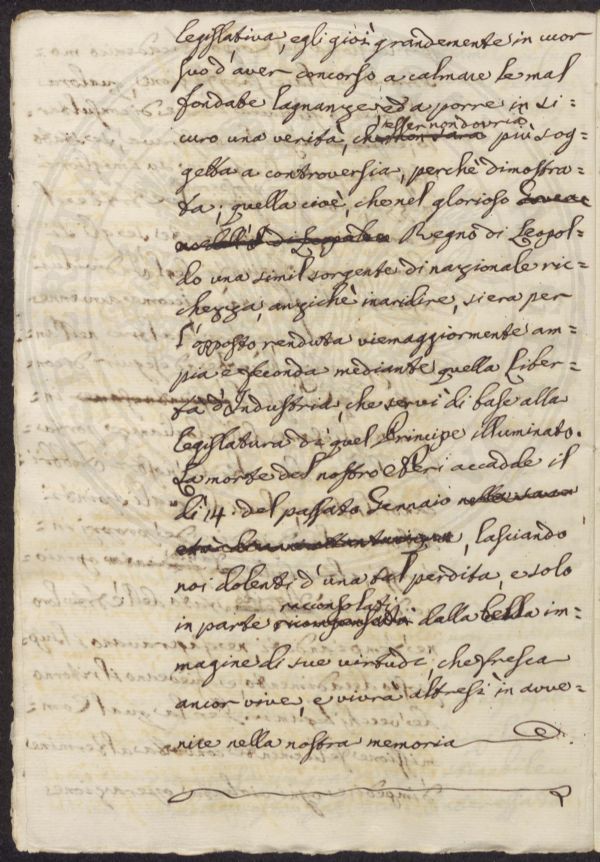 legislativa, egli gioì grandemente in cuor
suo d'aver concorso a calmare le mal
fondate lagnanze ed a porre in si=
esser non dovria
curo una verità, che non sarà più sog=
getta a controversia, perchè dimostra=
ta; quella cioè, che nel glorioso
di Leopoldo Regno di Leopol=
do una simil sorgente di nazionale ric=
chezza, anzichè inaridire, siera per
l'opposto renduta viemaggiormente am=
pia e feconda mediante quella Liber=
tà d'Industria, che servì di base alla
legislatura di quel Principe illuminato.
La morte del nostro Neri accadde il
dì 14. del passato Gennaio nella sua
età di anni ottantacinque, lasciando
noi dolenti d'una tal perdita, e solo
racconsolati
in parte ricompensati dalla bella im=
magine di sue virtudi, che fresca
ancor vive, e vivrà altresì in avve=
nire nella nostra memoria